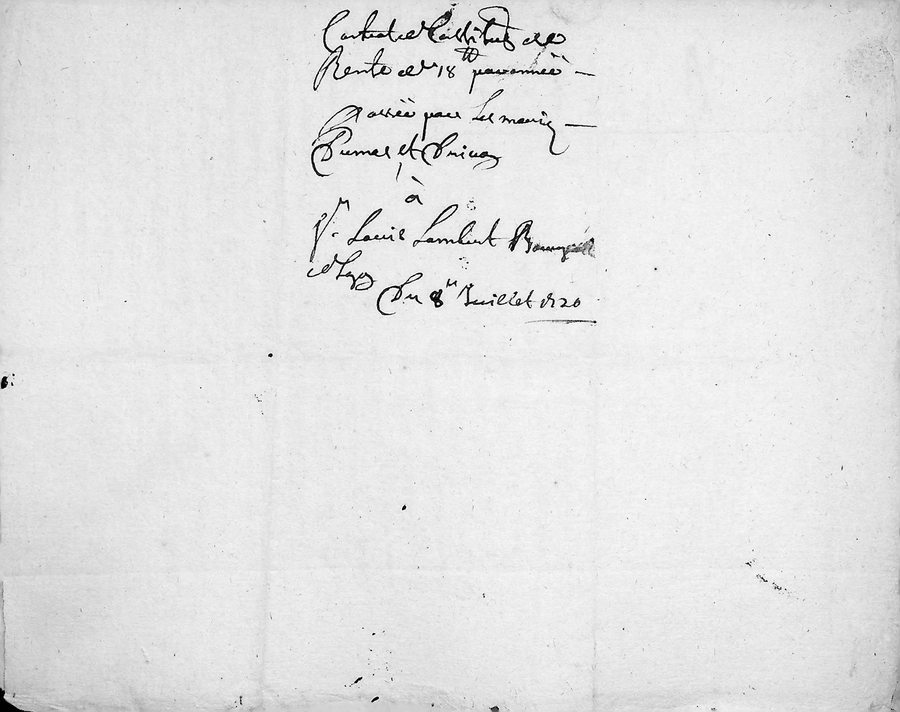 Contrat de Constitut de
Rente de 18 tt par année —
Passée par Les mariez —
Dumas et
à
Sr Louis Lambert Bourgeois
Du 8e Juillet 1720